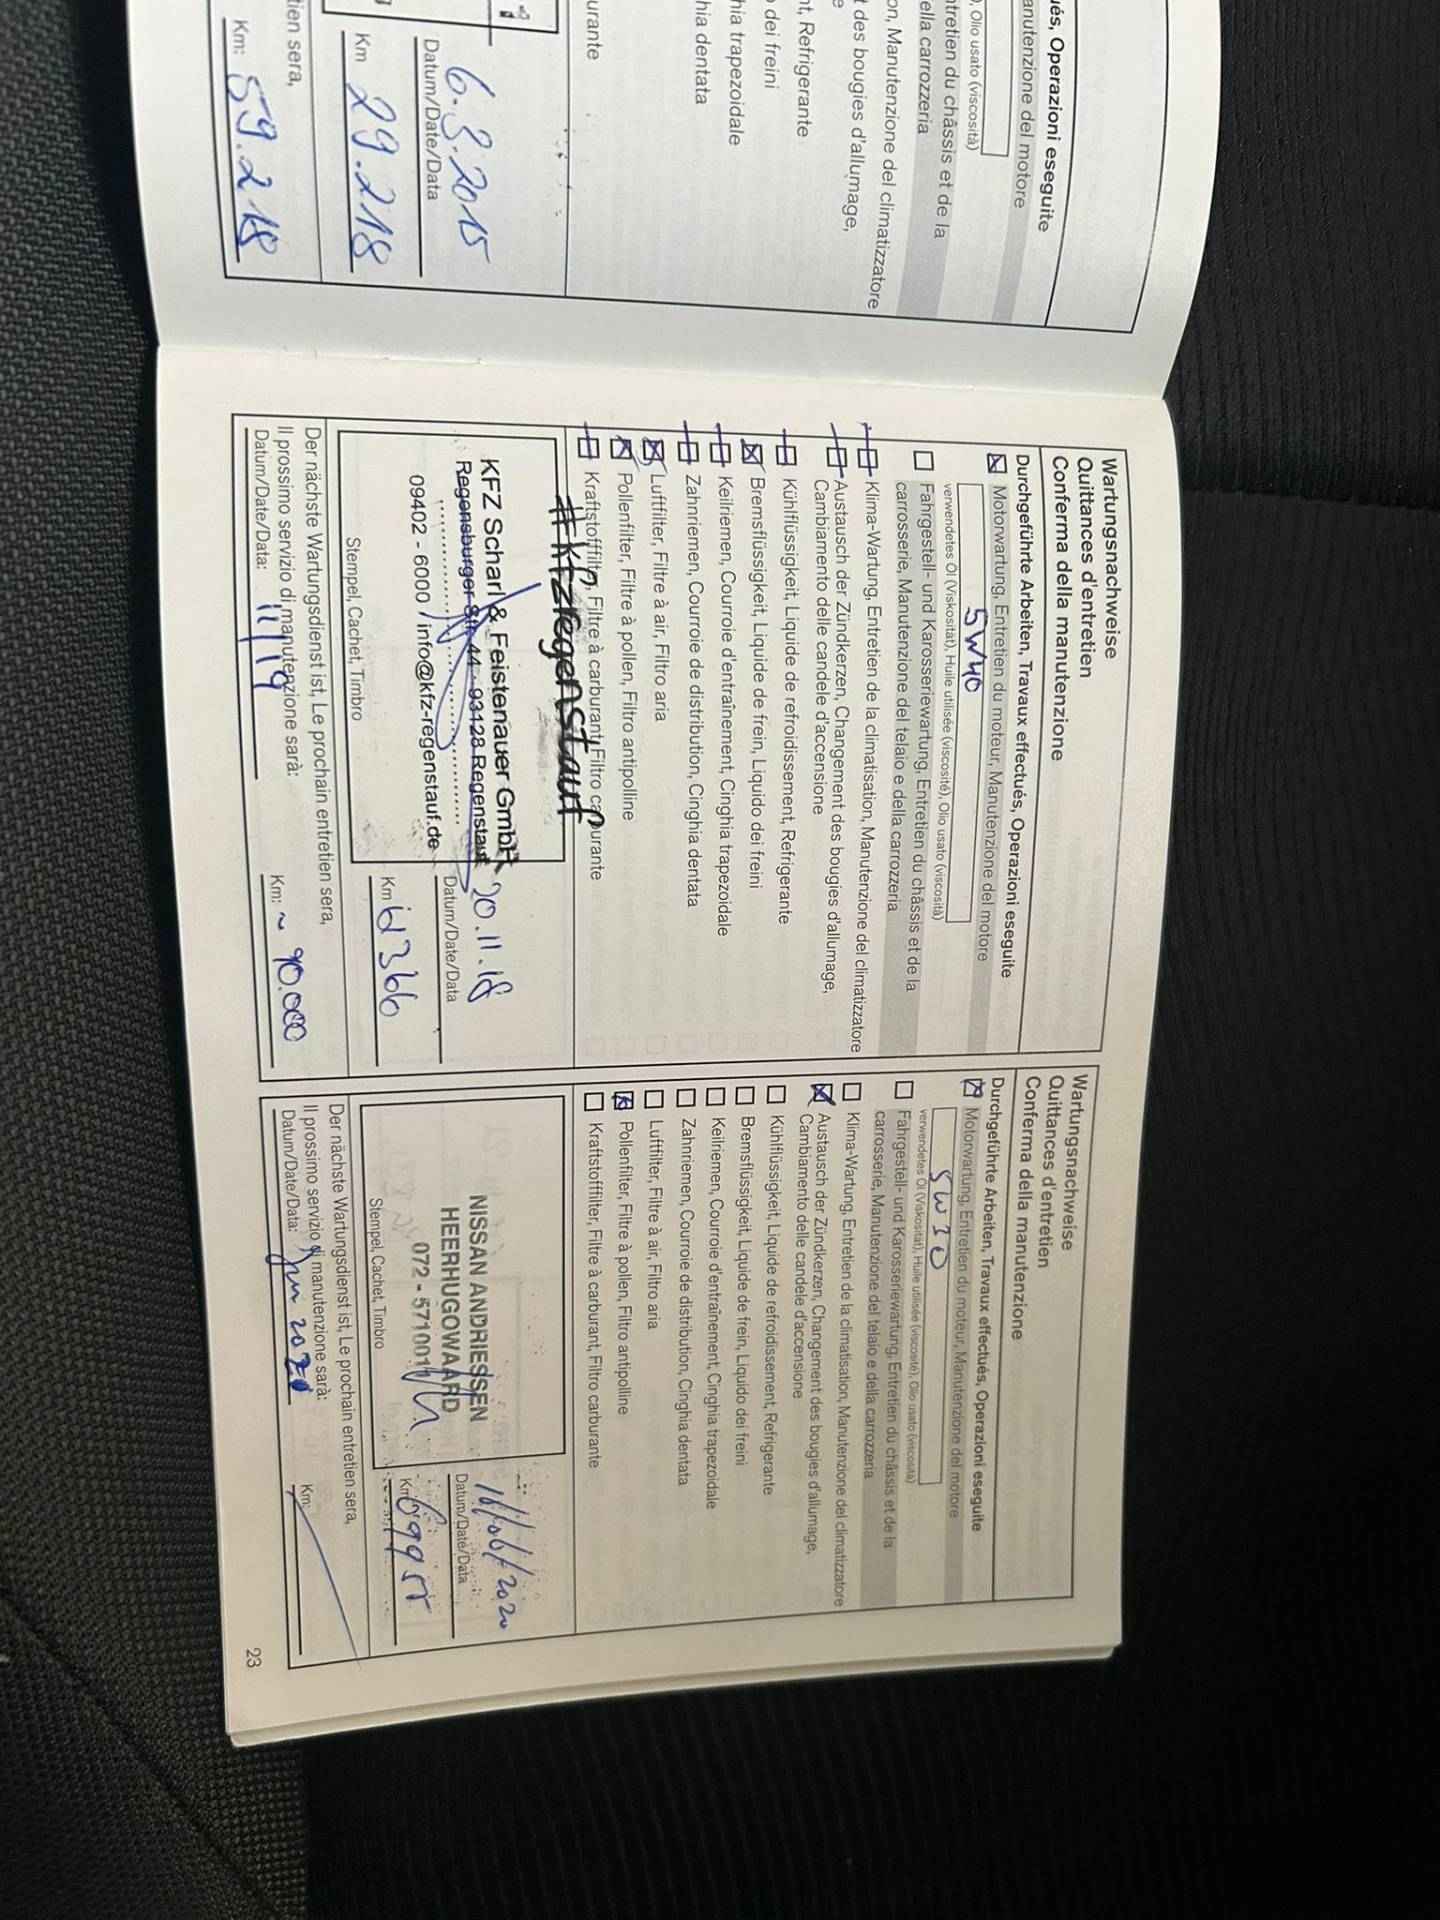 ués, Operazioni eseguite
anutenzione del motore
), Olio usato (viscosità)
ntretien du châssis et de la
ella carrozzeria
on, Manutenzione del climatizzatore
t des bougies d'allumage,
e
nt, Refrigerante
o dei freini
hia trapezoidale
hia dentata
urante
6.3.2015
Datum/Date/Data
Km 29.218
tien sera,
Km: 59.218
Wartungsnachweise
Quittances d'entretien
Conferma della manutenzione
Durchgeführte Arbeiten, Travaux effectués, Operazioni eseguite
Motorwartung, Entretien du moteur, Manutenzione del motore
5W40
verwendetes Öl (Viskosität), Huile utilisée (viscosité), Olio usato (viscosità)
Fahrgestell- und Karosseriewartung, Entretien du châssis et de la
carrosserie, Manutenzione del telaio e della carrozzeria
Klima-Wartung, Entretien de la climatisation, Manutenzione del climatizzatore
Austausch der Zündkerzen, Changement des bougies d'allumage,
Cambiamento delle candele d'accensione
Kühlflüssigkeit, Liquide de refroidissement, Refrigerante
Bremsflüssigkeit, Liquide de frein, Liquido dei freini
Keilriemen, Courroie d'entraînement, Cinghia trapezoidale
Zahnriemen, Courroie de distribution, Cinghia dentata
Luftfilter, Filtre à air, Filtro aria
Pollenfilter, Filtre à pollen, Filtro antipolline
Kraftstofffilter, Filtre à carburant, Filtro carburante
#kfzregenstauf
KFZ Scharl & Feistenauer GmbH
Regensburger Str. 44 · 93128 Regenstauf
09402 - 6000 / info@kfz-regenstauf.de
20.11.18
Datum/Date/Data
Stempel, Cachet, Timbro
Km 61366
Der nächste Wartungsdienst ist, Le prochain entretien sera,
Il prossimo servizio di manutenzione sarà:
Datum/Date/Data: 11/19
Km: ~ 90.000
Wartungsnachweise
Quittances d'entretien
Conferma della manutenzione
Durchgeführte Arbeiten, Travaux effectués, Operazioni eseguite
Motorwartung, Entretien du moteur, Manutenzione del motore
5W30
verwendetes Öl (Viskosität), Huile utilisée (viscosité), Olio usato (viscosità)
Fahrgestell- und Karosseriewartung, Entretien du châssis et de la
carrosserie, Manutenzione del telaio e della carrozzeria
Klima-Wartung, Entretien de la climatisation, Manutenzione del climatizzatore
Austausch der Zündkerzen, Changement des bougies d'allumage,
Cambiamento delle candele d'accensione
Kühlflüssigkeit, Liquide de refroidissement, Refrigerante
Bremsflüssigkeit, Liquide de frein, Liquido dei freini
Keilriemen, Courroie d'entraînement, Cinghia trapezoidale
Zahnriemen, Courroie de distribution, Cinghia dentata
Luftfilter, Filtre à air, Filtro aria
Pollenfilter, Filtre à pollen, Filtro antipolline
Kraftstofffilter, Filtre à carburant, Filtro carburante
NISSAN ANDRIESSEN
HEERHUGOWAARD
072 - 5710011
16/06/2020
Datum/Date/Data
Stempel, Cachet, Timbro
Km
Der nächste Wartungsdienst ist, Le prochain entretien sera,
Il prossimo servizio di manutenzione sarà:
Datum/Date/Data: Juni 2021
Km:
23